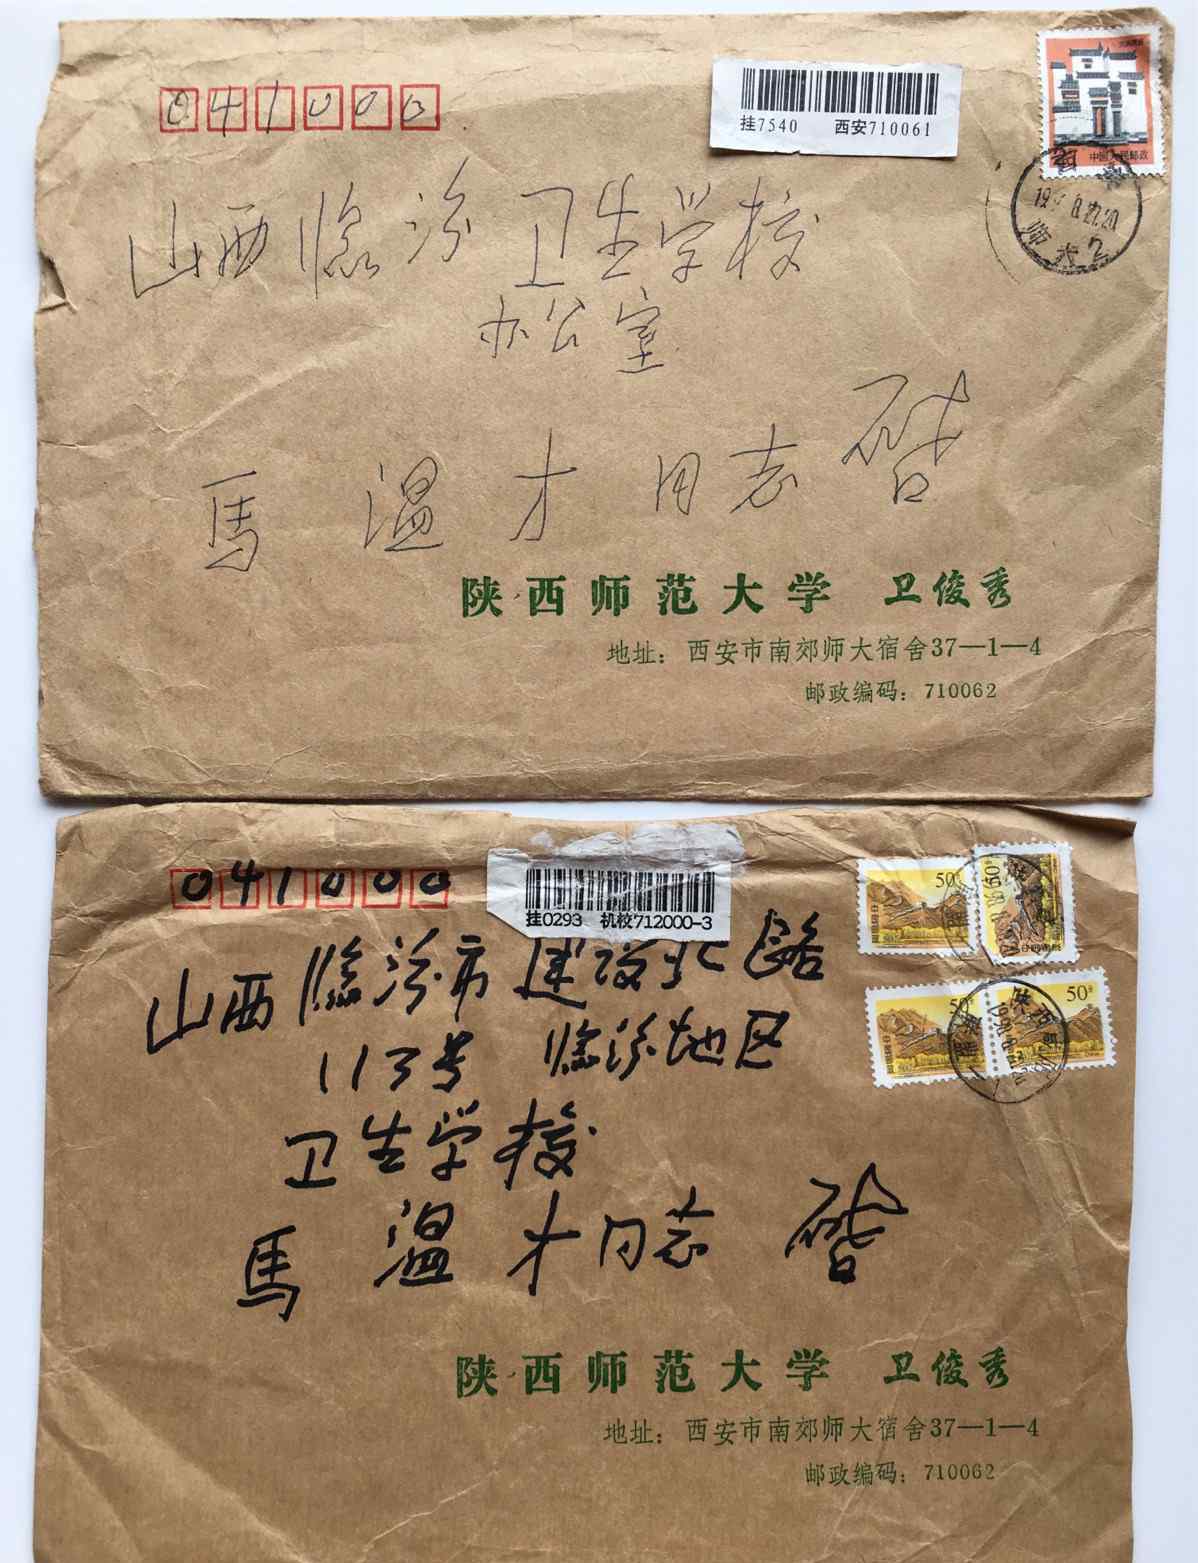 041000
挂7540 西安710061
中国人民邮政
师大2
山西临汾卫生学校
办公室
馬温才同志启
陕西师范大学 卫俊秀
地址：西安市南郊师大宿舍37—1—4
邮政编码：710062
041000
挂0293 机校712000-3
50分
50分
50分
50分
山西临汾市建设北路
113号 临汾地区
卫生学校
馬温才同志启
陕西师范大学 卫俊秀
地址：西安市南郊师大宿舍37—1—4
邮政编码：710062